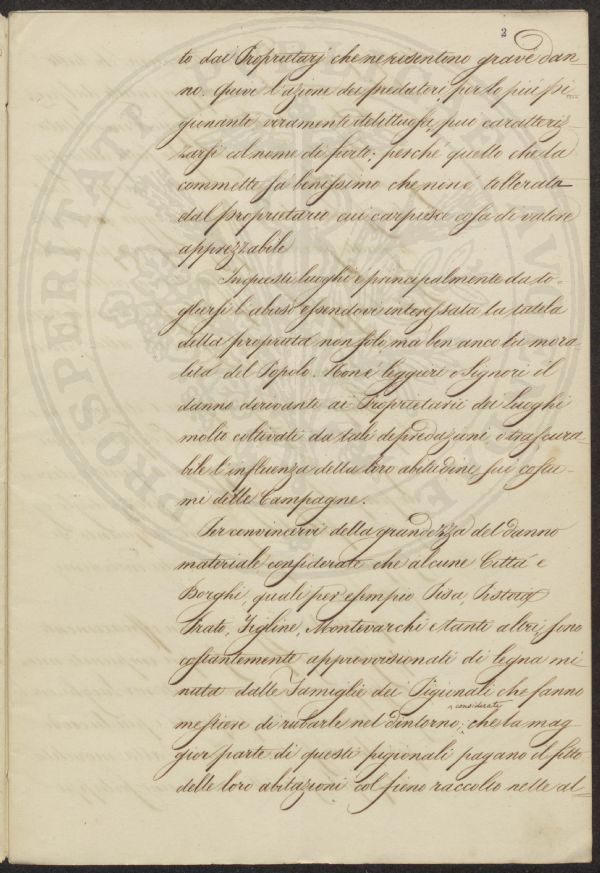 2
to dai Proprietarj che ne risentono grave dan-
no. Quivi l'azione dei predatori per lo più pi-
gionanti veramente delittuosa, può caratteriz-
zarsi col nome di furto; perché quello che la
commette sa benissimo che non é tollerata
dal proprietario cui carpisce cosa di valore
apprezzabile
In questi luoghi e principalmente da to-
gliersi l'abuso essendovi interessata la tutela
della proprietà non solo ma ben anco la mora-
lità del Popolo. Non é leggiero o Signori il
danno derivante ai Proprietarii dei Luoghi
molto coltivati da tali depredazioni, o trascura-
bile l'influenza della loro abitudine sui costu-
mi delle Campagne.
Per convincervi della grandezza del danno
materiale considerate che alcune Città e
Borghi, quali per esempio Pisa, Pistoia
Prato, Figline, Montevarchi e tanti altri, sono
costantemente approvvisionati di legna mi-
nuta dalle Famiglie dei Pigionali che fanno
mestiere di rubarle nel dintorno; considerate che la mag-
gior parte di questi pigionali pagano il fitto
delle loro abitazioni col fieno raccolto nelle al-
PROSPERITATI PUBLICAE AUGENDAE